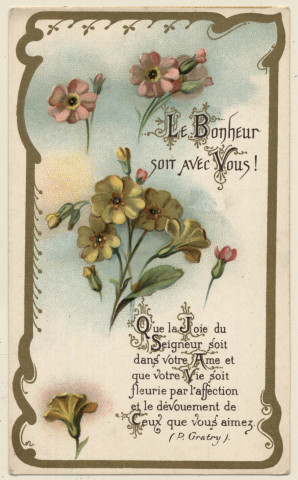 Le Bonheur
soit avec Vous !
Que la Joie du
Seigneur soit
dans votre Ame et
que votre Vie soit
fleurie par l'affection
et le dévouement de
Ceux que vous aimez
(P. Gratry).